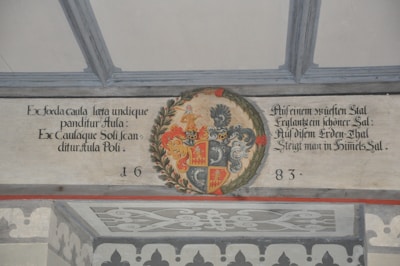 Ex sorda caula lata undique
panditur Aula:
Ex Caulaque Soli scan-
ditur Aula Poli.
16
Auß einem wüesten Stal
Erglantzt ein schöner Sal:
Auß disem Erden-Thal
Steigt man in Himels-Sal.
83.